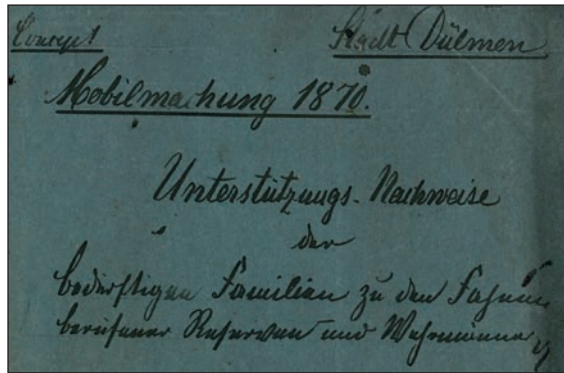 Concept
Stadt Dülmen
Mobilmachung 1870.
Unterstützungs-Nachweise
der
bedürftigen Familien zu den Fahnen
berufener Reserven und Wehrmänner